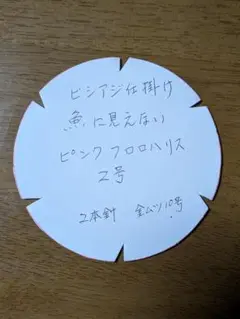 ビシアジ仕掛け
魚に見えない
ピンクフロロハリス
2号
2本針 金ムツ10号